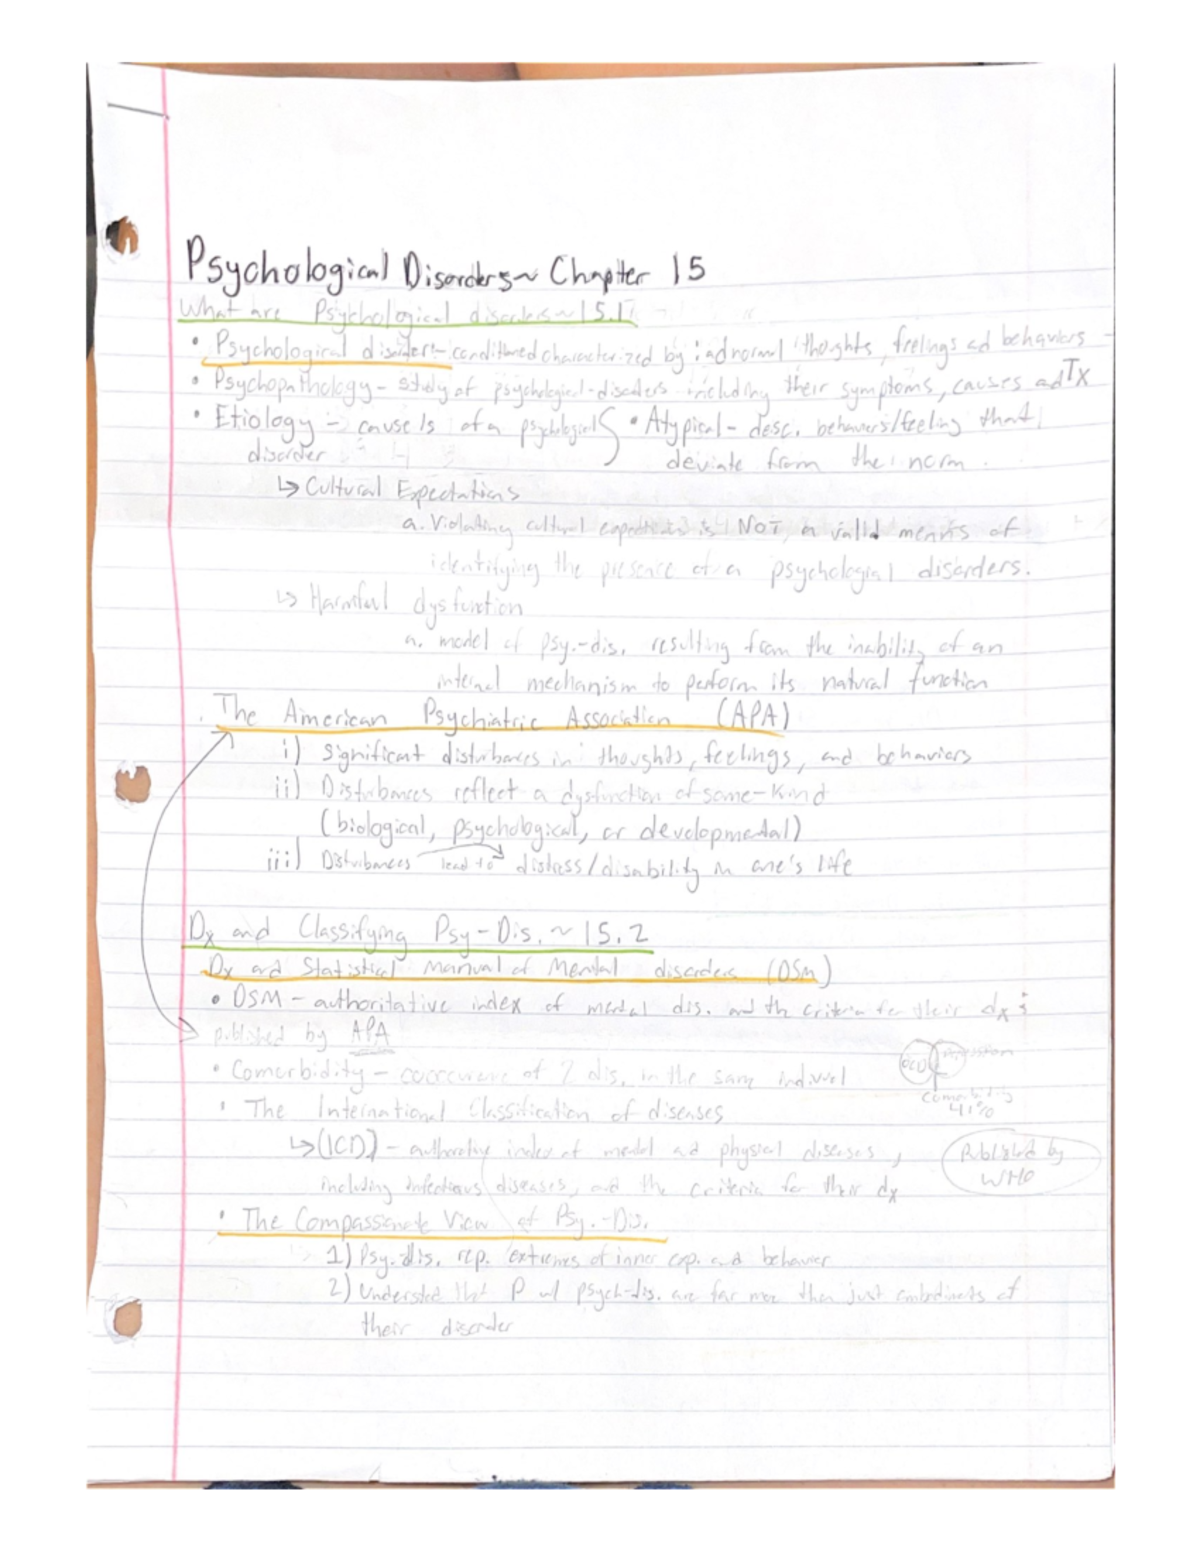 Psychological Disorders~ Chapter 15
What are Psychological disorders~15.1
• Psychological disorder- conditioned characterized by: adnormal thoughts, feelings ad behaviors
• Psychopathology - study of psychological-disorders including their symptoms, causes ad Tx
• Etiology - cause/s of a psychological • Atypical - desc. behaviers/feeling that
disorder deviate from the norm.
↳ Cultural Expectations
a. Violating cultural expectations is NOT a valid means of
identifying the presence of a psychological disorders.
↳ Harmful dysfunction
a. model of psy.-dis. resulting from the inability of an
internal mechanism to perform its natural function
The American Psychiatric Association (APA)
i) Significant disturbances in thoughts, feelings, and behaviors
ii) Disturbances reflect a dysfunction of some-kind
(biological, psychological, or developmental)
iii) Disturbances lead to distress/disability in one's life
Dx and Classifying Psy-Dis.~15.2
Dx and Statistical Manual of Mental disorders (DSM)
• DSM - authoritative index of mental dis. and the criteria for their dx;
published by APA
• Comorbidity - cooccurence of 2 dis. in the same
OCD
comorbidity
41%
• The International Classification of diseases
↳(ICD) - authorative index of mental ad physical diseases,
including infectious diseases, and the criteria for their dx
Published by
WHO
• The Compassionate View of Psy.-Dis.
1) Psy. dis. rep. extremes of inner exp. and behavior
2) Understand that P w/ psych-dis. are far more than just embodiments of
their disorder